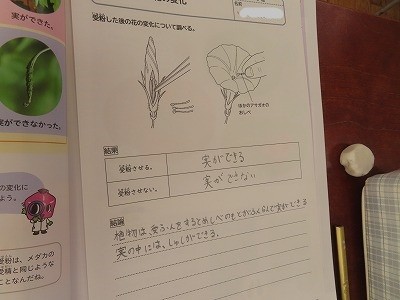 の変化
名前
受粉した後の花の変化について調べる。
実ができた。
実ができなかった。
ほかのアサガオの
おしべ
結果
受粉させる。 実ができる
受粉させない。 実ができない
結論
植物は、受ふんをするとめしべのもとがふくらんで実ができる
実の中には、しゅしができる。
の変化に
よう。
受粉は、メダカの
受精と同じような
ことなんだね。